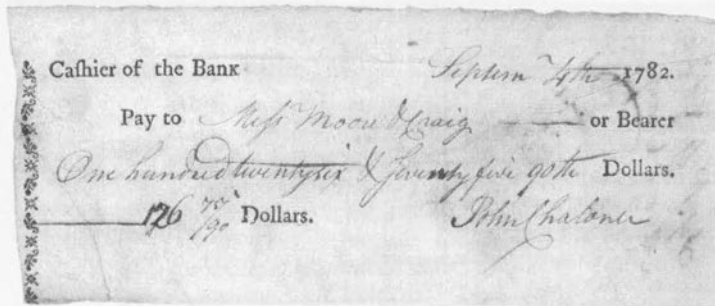 Caſhier of the Bank Septemr 4th 1782.
Pay to Meſsrs Moore & Craig or Bearer
One hundred twenty six & Seventy five 90ths Dollars.
126 75/90 Dollars.
John Chaloner